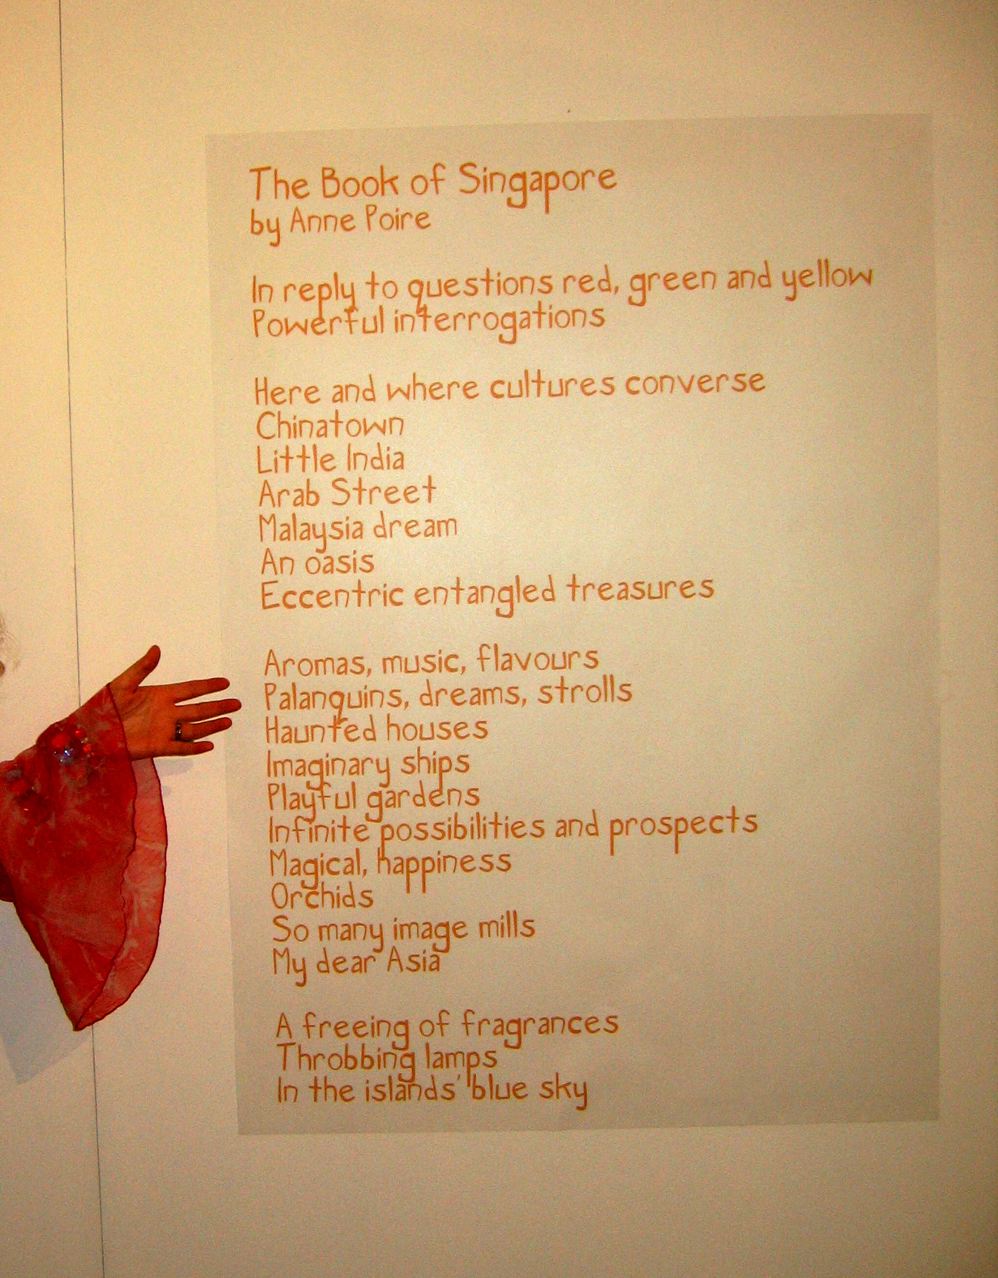 The Book of Singapore
by Anne Poire
In reply to questions red, green and yellow
Powerful interrogations
Here and where cultures converse
Chinatown
Little India
Arab Street
Malaysia dream
An oasis
Eccentric entangled treasures
Aromas, music, flavours
Palanquins, dreams, strolls
Haunted houses
Imaginary ships
Playful gardens
Infinite possibilities and prospects
Magical, happiness
Orchids
So many image mills
My dear Asia
A freeing of fragrances
Throbbing lamps
In the islands' blue sky